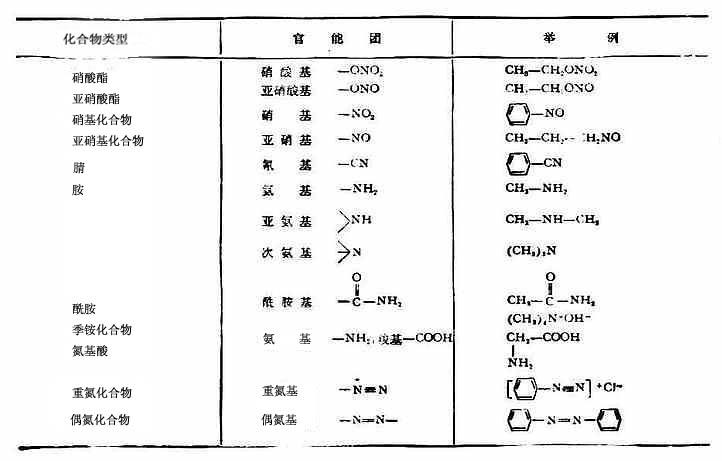 化合物类型 官能团 举例
硝酸酯 硝酸基 —ONO₂ CH₃—CH₂ONO₂
亚硝酸酯 亚硝酸基 —ONO CH₃—CH₂ONO
硝基化合物 硝基 —NO₂ —NO
亚硝基化合物 亚硝基 —NO CH₃—CH₂—CH₂NO
腈 氰基 —CN —CN
胺 氨基 —NH₂ CH₃—NH₂
亚氨基 >NH CH₃—NH—CH₃
次氨基 N (CH₃)₃N
O O
酰胺 酰胺基 —C—NH₂ CH₃—C—NH₂
季铵化合物 (CH₃)₄N⁺OH⁻
氮基酸 氨基 —NH₂, 羧基—COOH CH₂—COOH
NH₂
重氮化合物 重氮基 —N≡N [—N≡N]⁺Cl⁻
偶氮化合物 偶氮基 —N=N— —N=N—